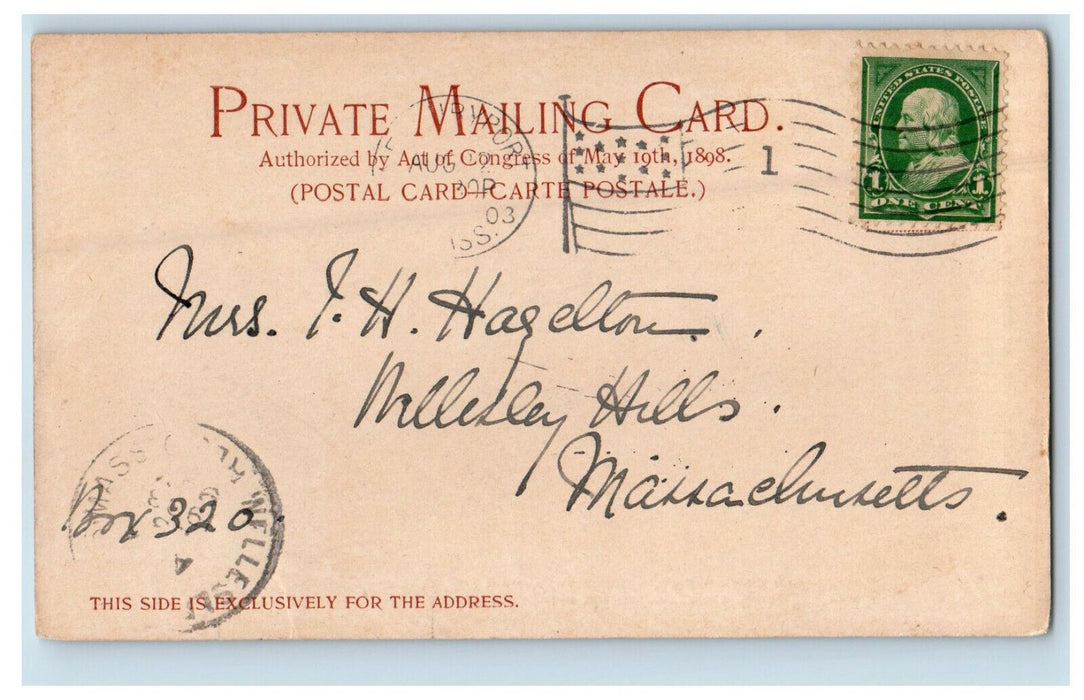 PRIVATE MAILING CARD.
Authorized by Act of Congress of May 19th, 1898.
(POSTAL CARD—CARTE POSTALE.)
AUG
03
1
UNITED STATES POSTAGE
1 1
ONE CENT
Mrs. I. H. Hazelton.
Wellesley Hills.
Massachusetts.
Box 320.
MASS
WELLESLEY
THIS SIDE IS EXCLUSIVELY FOR THE ADDRESS.